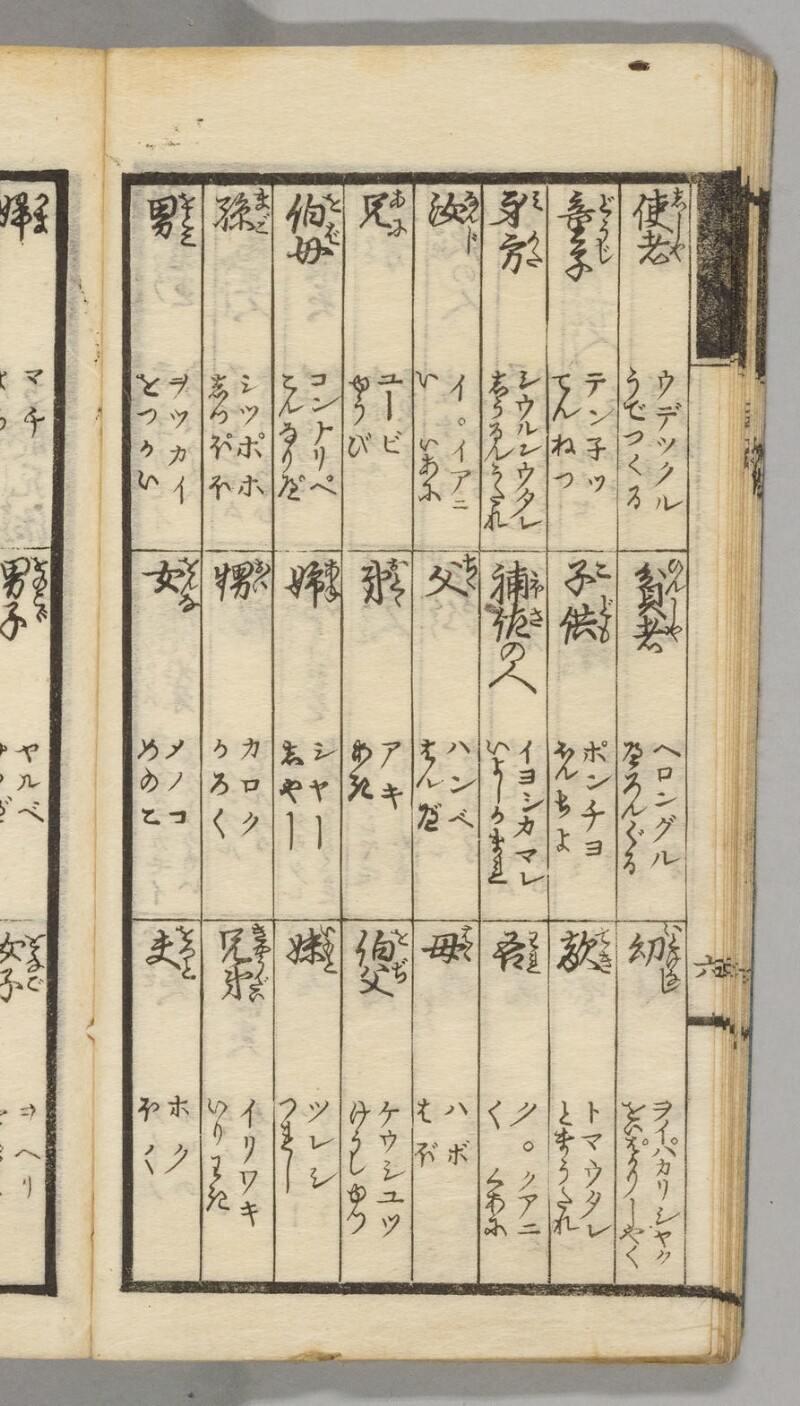 使者 ししや
ウデツクル
うでつくる
貧者 ひんしや
ヘロングル
へろんぐる
幼 いとけなし
ヲイパカリシヤク
をいぱかりしやく
童子 どうじ
テン子ツ
てんねつ
子供 こども
ポンチヨ
ぽんちよ
敵 てき
トマウタレ
とまうたれ
身方 みかた
シウルンウタレ
しうるんうたれ
補佐の人 ほさ
イヨシカマレ
いよしかまれ
吾 われ
ク。クアニ
く くあに
汝 なんじ
イ。イアニ
い いあに
父 ちち
ハンベ
はんべ
母 はは
ハボ
はぼ
兄 あに
ユービ
ゆうび
弟 おとと
アキ
あき
伯父 をぢ
ケウシユツ
けうしゆつ
伯母 をば
コンナリペ
こんなりぺ
姉 あね
シヤー
しやー
妹 いもと
ツレシ
つれし
孫 まご
シツポホ
しつぽほ
甥 おい
カロク
かろく
兄弟 きやうだい
イリワキ
いりわき
男 をとこ
ヲツカイ
をつかい
女 をんな
メノコ
めのこ
夫 をつと
ホク
ほく
六
婦
マチ
男子
ヤルベ
女子
ヲヘリ